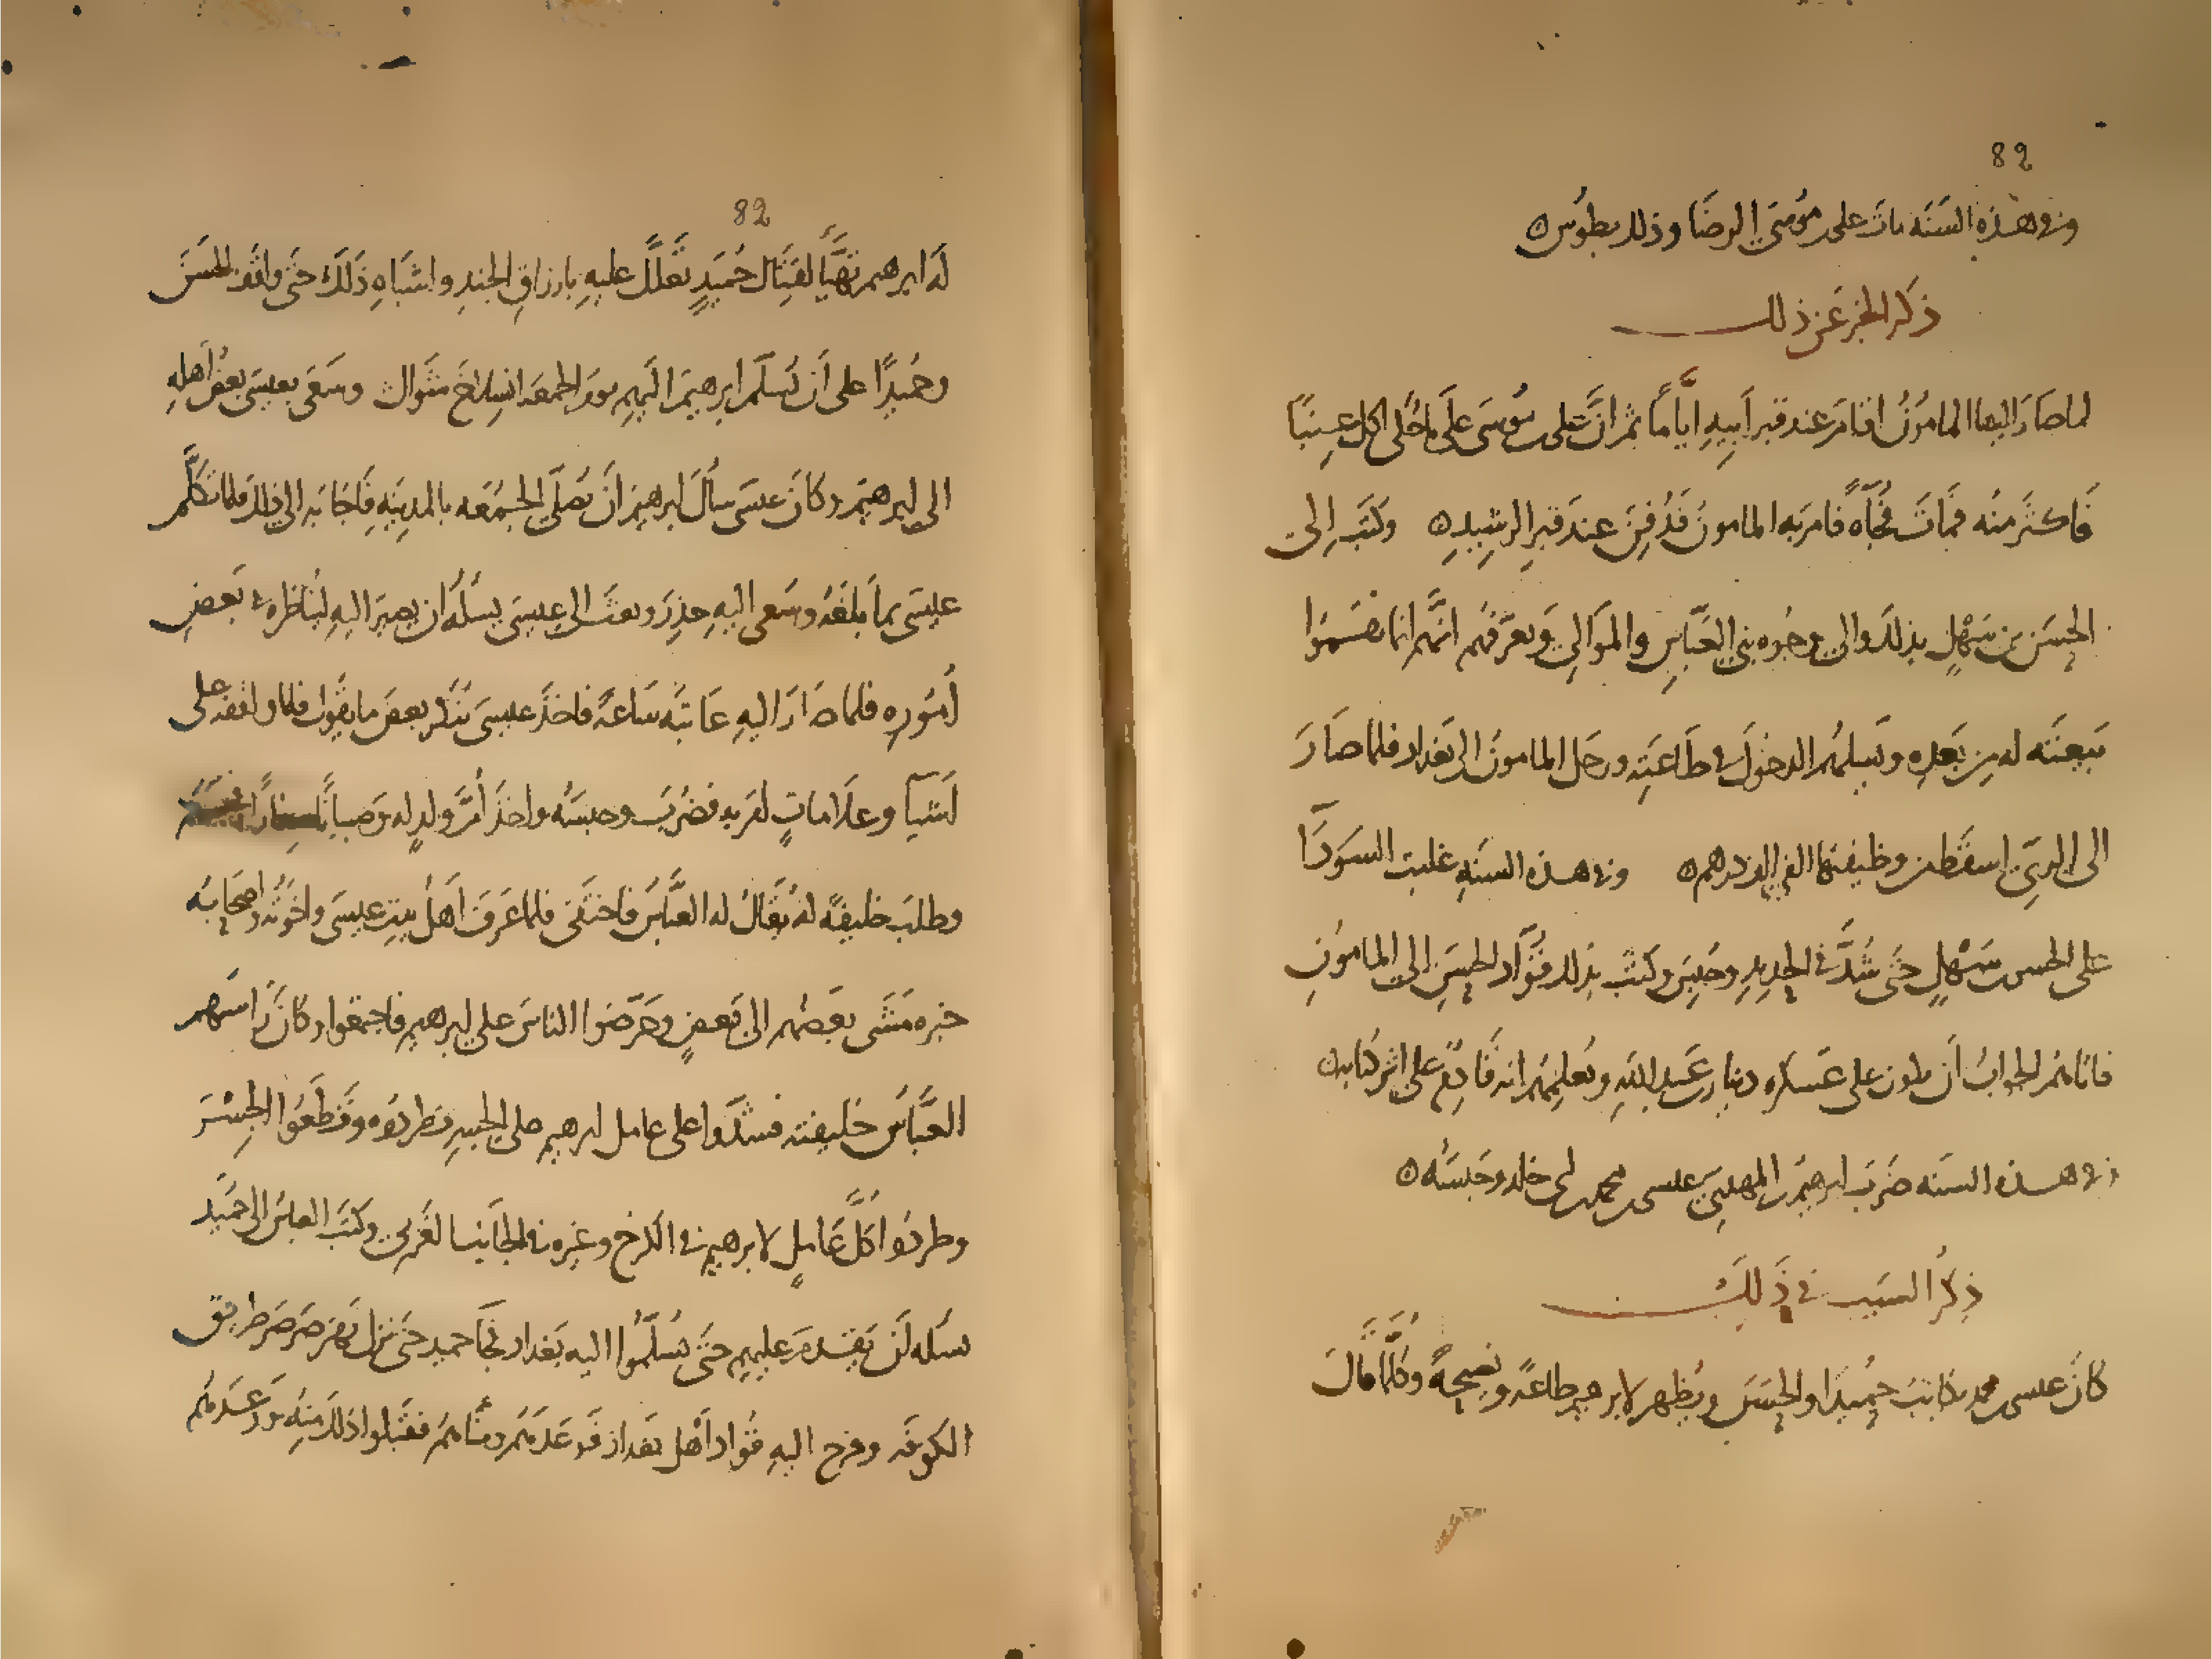 82
وفي هذه السنة مات علي بن موسى الرضا وذلك بطوس
ذكر الخبر عن ذلك
لما صار اليها المامون اقام عند قبر ابيه اياما ثم ان علي بن موسى على ما حكي اكل عنبا
فاكثر منه فمات فجاة فامر به المامون فدفن عند قبر الرشيد وكتب الى
الحسن بن سهل بذلك والى وجوه بني العباس والموالي ويعرفهم انهم انما نقموا
بيعته له من بعده وتسلهم الدخول في طاعته ورحل المامون الى بغداد فلما صار
الى الري اسقط من وظيفتها الفي الف درهم وفي هذه السنة غلبت السودا
على الحسن بن سهل حتى شد في الحديد وحبس وكتب بذلك قواد الحسن الى المامون
فاتاهم الجواب ان يكون على عسكره دينار بن عبد الله ويعلمهم انه قادم على اثر كتابه
وفي هذه السنة ضرب ابرهيم بن المهدي عيسى بن محمد بن ابي خالد وحبسه
ذكر السبب في ذلك
كان عيسى بن محمد يكاتب حميدا والحسن ويظهر لابرهيم طاعة ونصيحة وكلما قال
82
له ابرهيم تهيا لقتال حميد تعلل عليه بارزاق الجند واشباه ذلك حتى واقف الحسن
وحميدا على ان يسلم ابرهيم اليهم يوم الجمعة انسلاخ شوال وسعى بعيسى بعض اهله
الى ابرهيم وكان عيسى سأل ابرهيم ان يصلي الجمعه بالمدينة فاجابه الى ذلك فلما تكلم
عيسى بما بلغه وسعى اليه حذر وبعث الى عيسى يسله ان يصير اليه ليناظره في بعض
اموره فلما صار اليه عاتبه ساعة فاخذ عيسى ينكر بعض ما يقول فلما واقفه على
اشيا وعلامات امر به فضرب وحبسه واخذ ام ولد له وصبيانا صغارا
وطلب خليفة له يقال له العباس فاختفى فلما عرف اهل بيت عيسى واخوته واصحابه
خبره مشى بعضهم الى بعض وحرضوا الناس على ابرهيم فاجتمعوا وكان راسهم
العباس خليفته فشدوا على عامل ابرهيم على الجسر فطردوه وقطعوا الجسر
وطردوا كل عامل لابرهيم في الكرخ وغيره في الجانب الغربي وكتب العباس الى حميد
يسله ان يقدم عليهم حتى يسلموا اليه بغداد فجا حميد حتى نزل نهر صرصر طريق
الكوفة وخرج اليه قواد اهل بغداد فوعدهم ومناهم فقبلوا ذلك منه